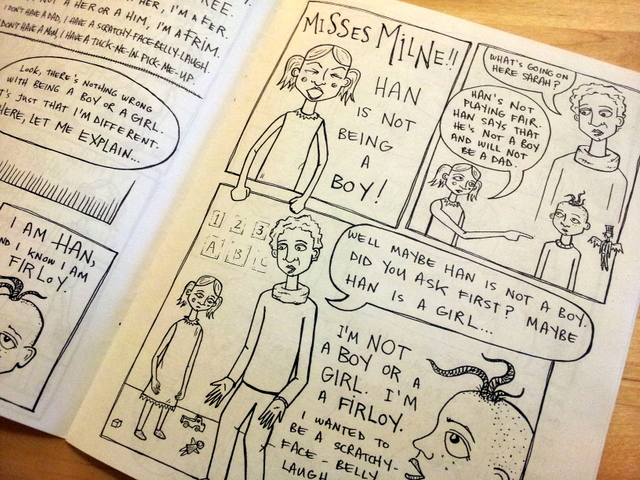 REE.
HER, I'M A FER.
NOT A HER OR A HIM, I'M A FRIM.
I DON'T HAVE A DAD, I HAVE A SCRATCHY-FACE-BELLY-LAUGH.
DON'T HAVE A MOM, I HAVE A TUCK-ME-IN-PICK-ME-UP.
LOOK, THERE'S NOTHING WRONG
WITH BEING A BOY OR A GIRL.
IT'S JUST THAT I'M DIFFERENT.
HERE, LET ME EXPLAIN...
I AM HAN,
AND I KNOW I AM
FIRLOY.
MISSES MILNE!!
HAN
IS NOT
BEING
A
BOY!
WHAT'S GOING ON
HERE SARAH?
HAN'S NOT
PLAYING FAIR.
HAN SAYS THAT
HE'S NOT A BOY
AND WILL NOT
BE A DAD.
1 2 3
A B C
WELL MAYBE HAN IS NOT A BOY.
DID YOU ASK FIRST? MAYBE
HAN IS A GIRL...
I'M NOT
A BOY OR A
GIRL. I'M
A FIRLOY.
I WANTED TO
BE A SCRATCHY-
FACE-BELLY
LAUGH